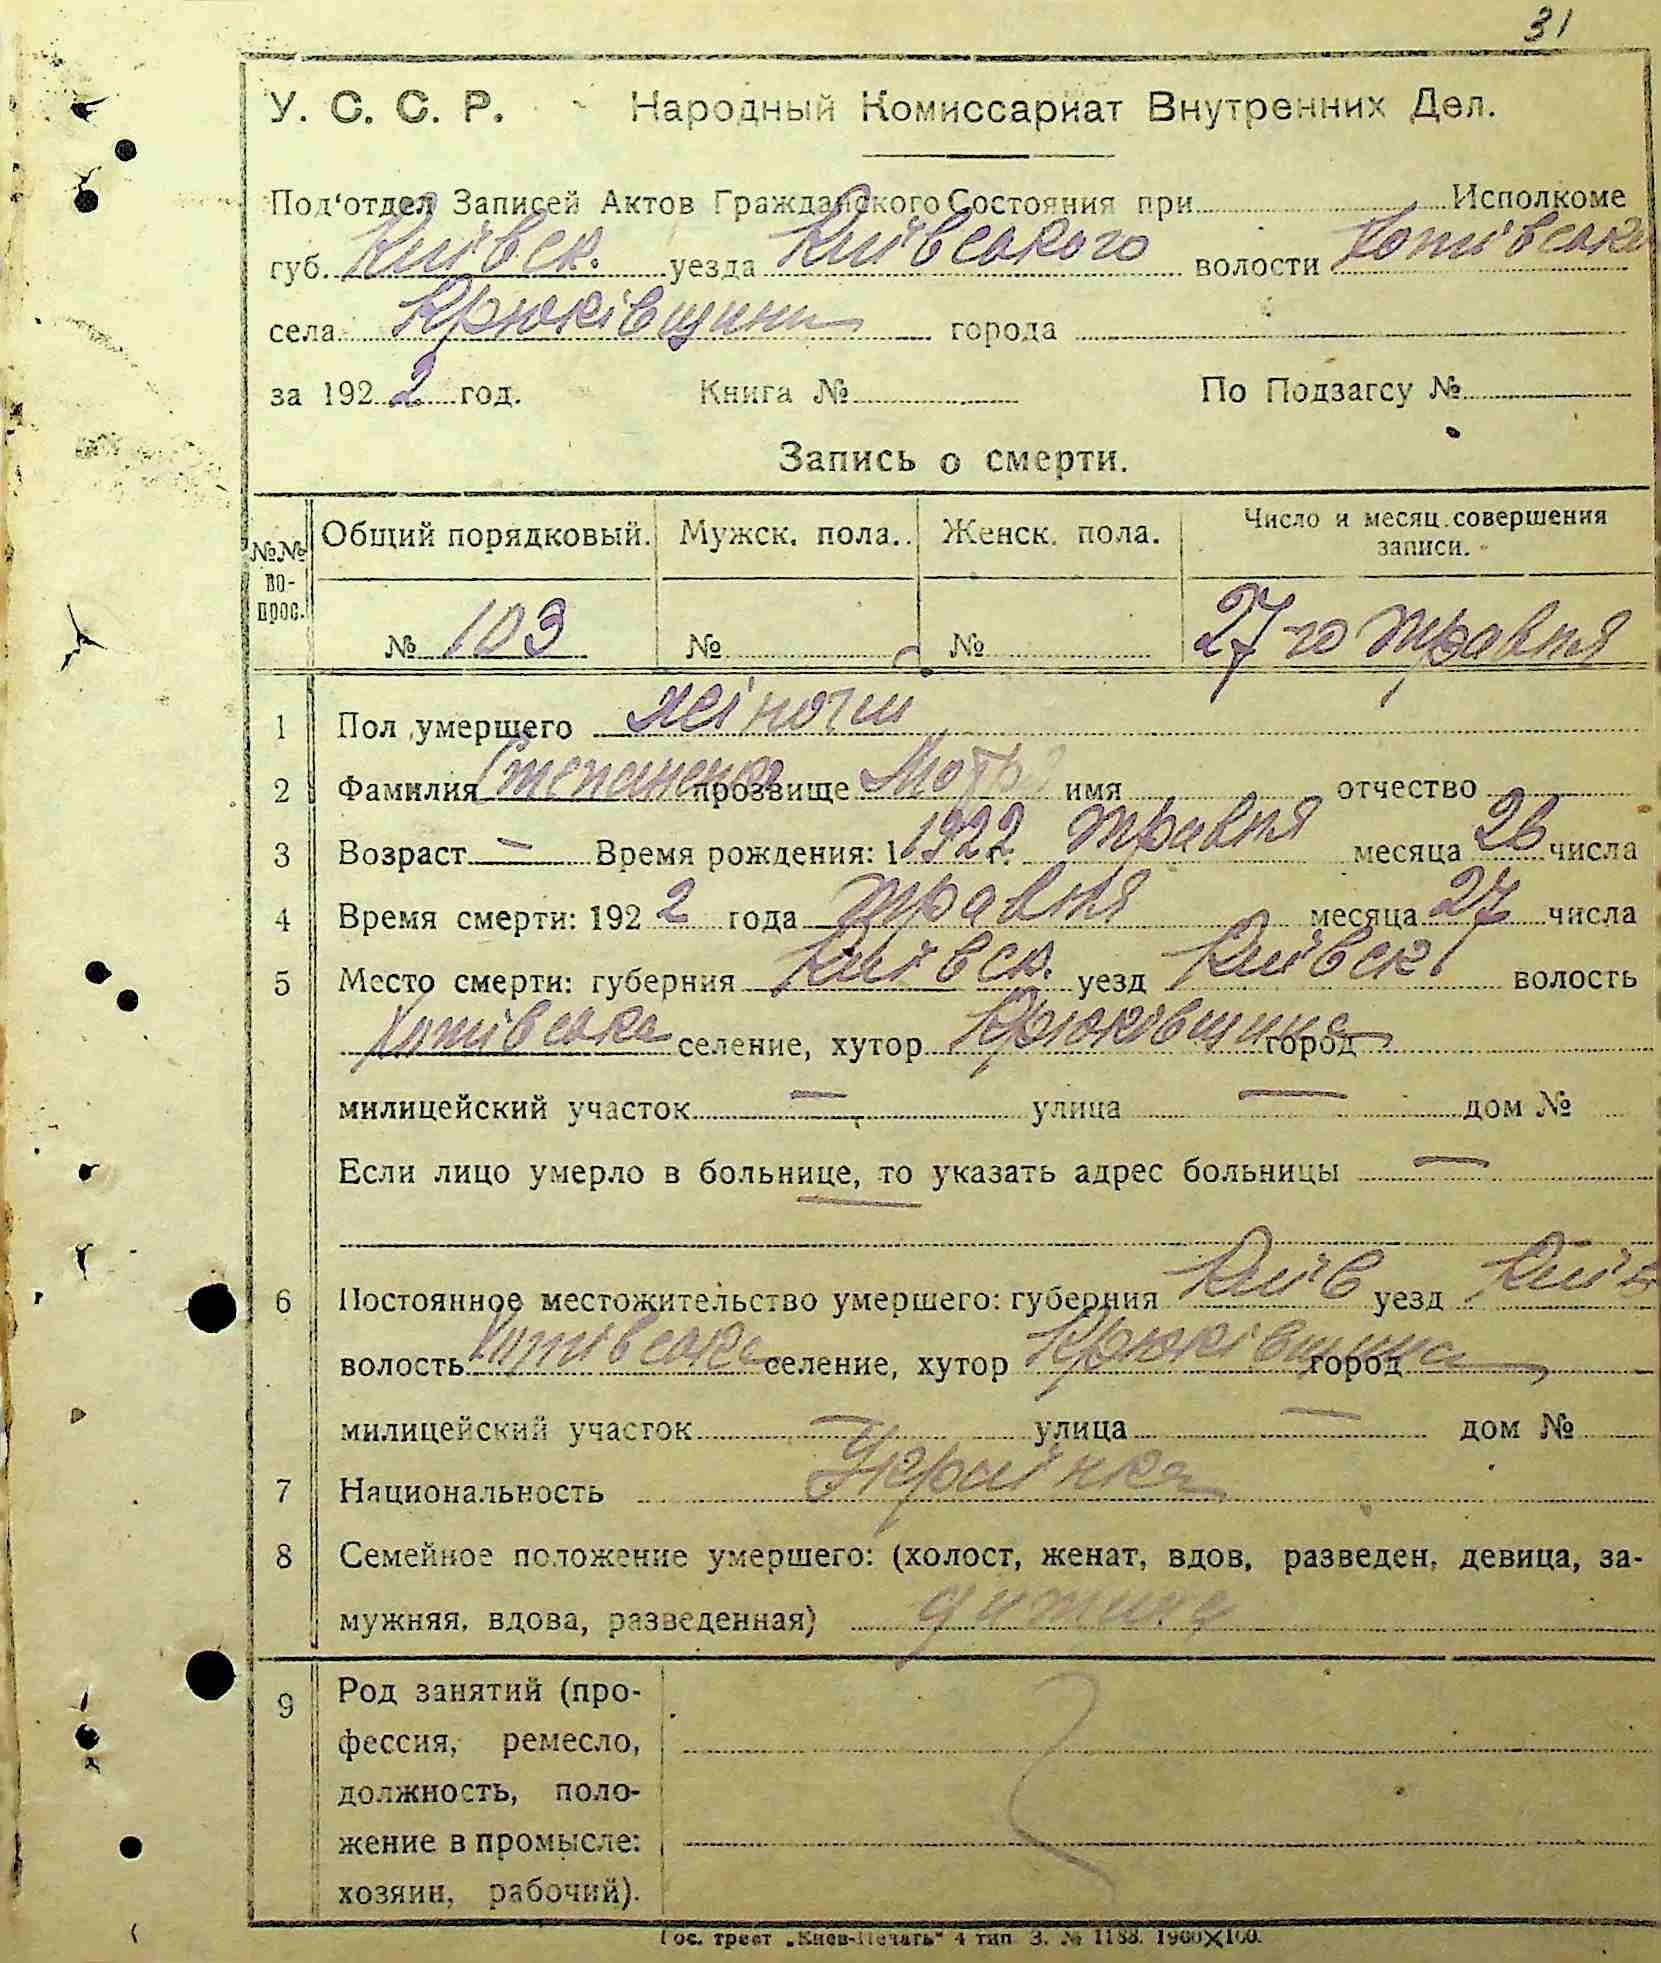 31
У. С. С. Р. Народный Комиссариат Внутренних Дел.
Под'отдел Записей Актов Гражданского Состояния при Исполкоме
губ. Київськ. уезда Київського волости Хотівсько
села Крюківщини города
за 1922 год. Книга № По Подзагсу №
Запись о смерти.
№№ во-прос. Общий порядковый. Мужск. пола. Женск. пола. Число и месяц совершения записи.
№ 103 № № 27-го травня
1 Пол умершего жіночи
2 Фамилия Степаненко прозвище Мотря имя отчество
3 Возраст — Время рождения: 1 1922 г. травня месяца 26 числа
4 Время смерти: 1922 года травня месяца 27 числа
5 Место смерти: губерния Київск. уезд Київск. волость
Хотівська селение, хутор Крюківщина город
милицейский участок — улица — дом №
Если лицо умерло в больнице, то указать адрес больницы —
—
6 Постоянное местожительство умершего: губерния Київ уезд Київ
волость Хотівська селение, хутор Крюківщина город
милицейский участок — улица — дом №
7 Национальность Українка
8 Семейное положение умершего: (холост, женат, вдов, разведен, девица, за-
мужняя, вдова, разведенная) дитина
9 Род занятий (про-
фессия, ремесло,
должность, поло-
жение в промысле:
хозяин, рабочий).
Гос. трест „Киев-Печать" 4 тип. З. № 1188. 1900×100.